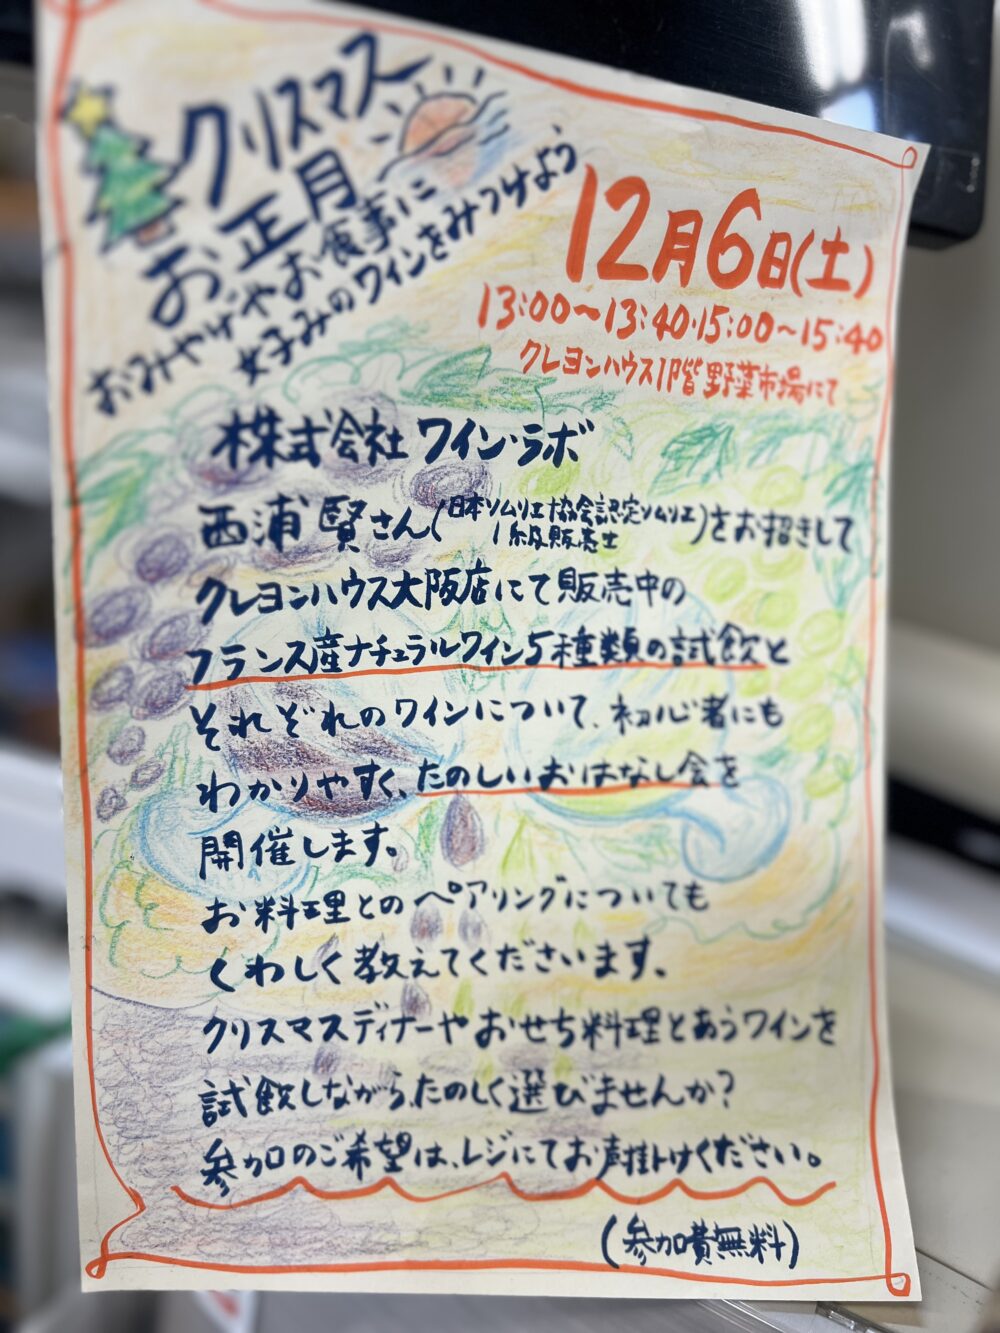 クリスマス
お正月
おみやげやお食事に
好みのワインをみつけよう
12月6日(土)
13:00〜13:40・15:00〜15:40
クレヨンハウス1階野菜市場にて
株式会社 ワイン・ラボ
西浦 賢さん(日本ソムリエ協会認定ソムリエ 1級販売士)をお招きして
クレヨンハウス大阪店にて販売中の
フランス産ナチュラルワイン5種類の試飲と
それぞれのワインについて、初心者にも
わかりやすく、たのしいおはなし会を
開催します。
お料理とのペアリングについても
くわしく教えてくださいます。
クリスマスディナーやおせち料理とあうワインを
試飲しながら、たのしく選びませんか?
参加のご希望は、レジにてお声掛けください。
(参加費無料)